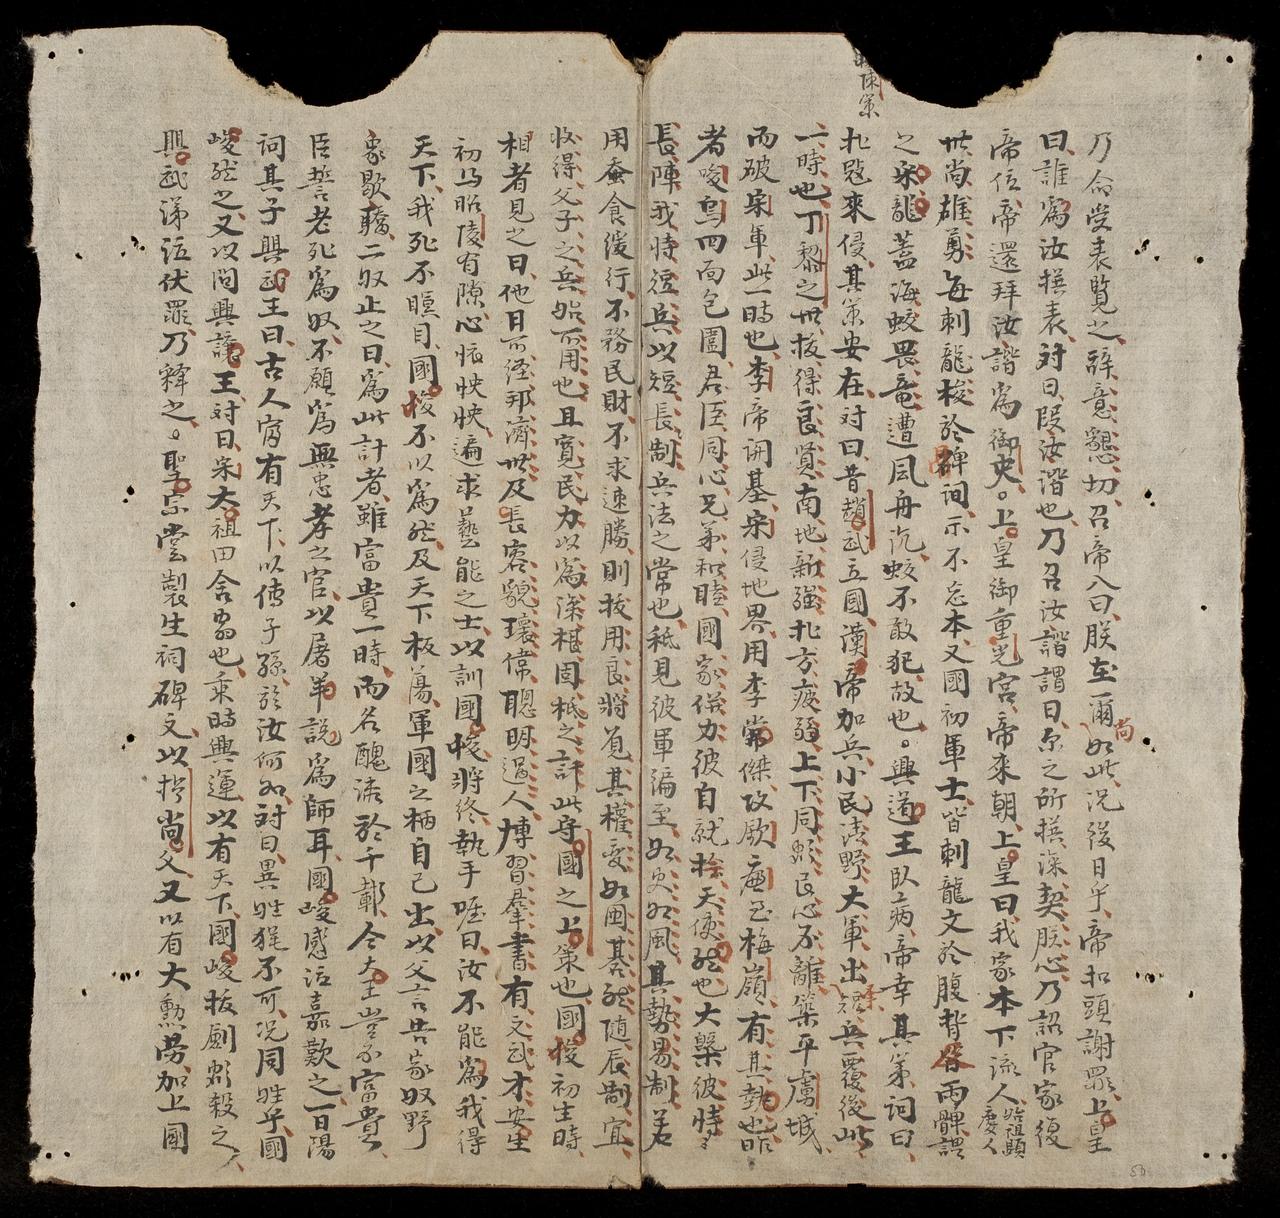 乃命受表覧之辞意懇切召帝入曰朕在爾尚如此况後日乎帝扣頭謝罪上皇
曰誰為汝撰表対曰段汝諧也乃召汝諧謂曰尓之所撰深契朕心乃詔官家復
帝位帝還拜汝諧為御史。上皇御重光宮帝來朝上皇曰我家本下流人始祖顕慶人
世尚雄勇毎刺龍梭於髀詞示不忘本又國初軍士皆刺龍文於腹背皆両髀謂
之宋龍蓋海蛟畏竜遭風舟沉蛟不敢犯故也。興道王臥病帝幸其第詞曰
陳策
北冦來侵其策安在対曰昔趙武立國漢帝加兵小民清野大軍出短兵覆後此
一時也丁黎之世拔得良賢南地新强北方疲弱上下同欲民心不離築平虜城
而破宋軍此一時也李帝開基宋侵地界用李常傑攻欽廉至梅嶺有其勢也昨
者唆烏四面包圍君臣同心兄弟和睦國家併力彼自就擒天使然也大槩彼恃
長陣我恃短兵以短制長兵法之常也秪見彼軍徧至如火如風其勢易制若
用蚕食緩行不務民財不求速勝則拔用良將覓其權変如囲棊然随辰制宜
收得父子之兵始可用也且寛民力以為深根固柢之計此守國之上策也國梭初生時
相者見之曰他日可経邦濟世及長容貌瓌偉聡明過人博習羣書有文武才安生
初与昭陵有隙心悵怏怏遍求藝能之士以訓國梭將終執手嘱曰汝不能為我得
天下我死不瞑目國梭不以為然及天下板蕩軍國之柄自己出以父言告家奴野
象歇驕二奴止之曰為此計者雖富貴一時而名醜遺於千載今大王豈不富貴
臣誓老死為奴不願為無忠孝之官以屠羊説為師耳國峻感泣嘉歎之一日陽
詞其子興武王曰古人富有天下以傳子孫於汝何如対曰異姓猶不可况同姓乎國
峻然之又以問興讓王対曰宋太祖田舎翁也乘時興運以有天下國峻拔劍欲殺之
興武涕泣伏罪乃釋之。聖宗嘗製生祠碑文以擬尚父又以有大勲労加上國